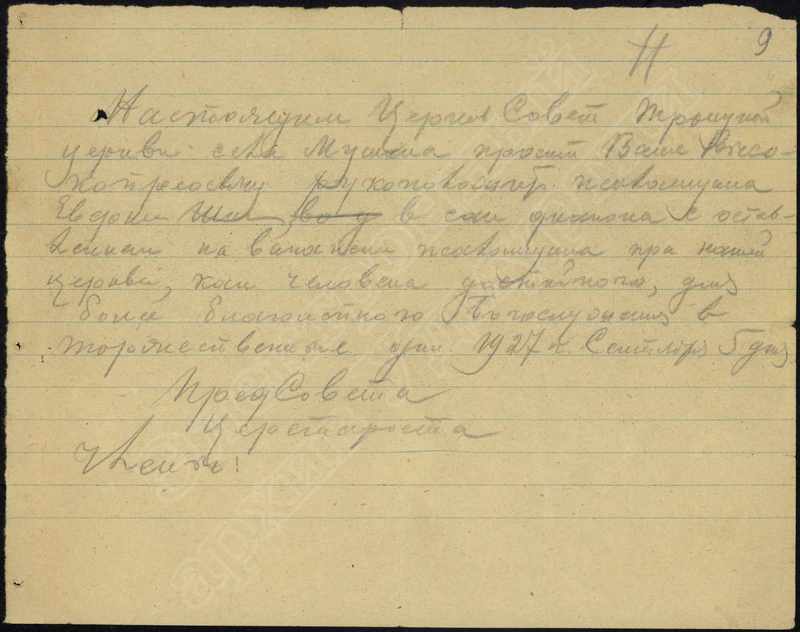 11 9
Настоящим Церков Совет Троицкой
церкви села Мушака просит Ваше Высо-
копреосвящ рукоположить псаломщика
Евдоким в сан диакона с остав-
лением на вакансии псаломщика при нашей
церкви, как человека достойного, для
более благолепного Богослужения в
торжественные дни. 1927 г. Сентября 5 дня
ПредСовета
Церк староста
Члены: